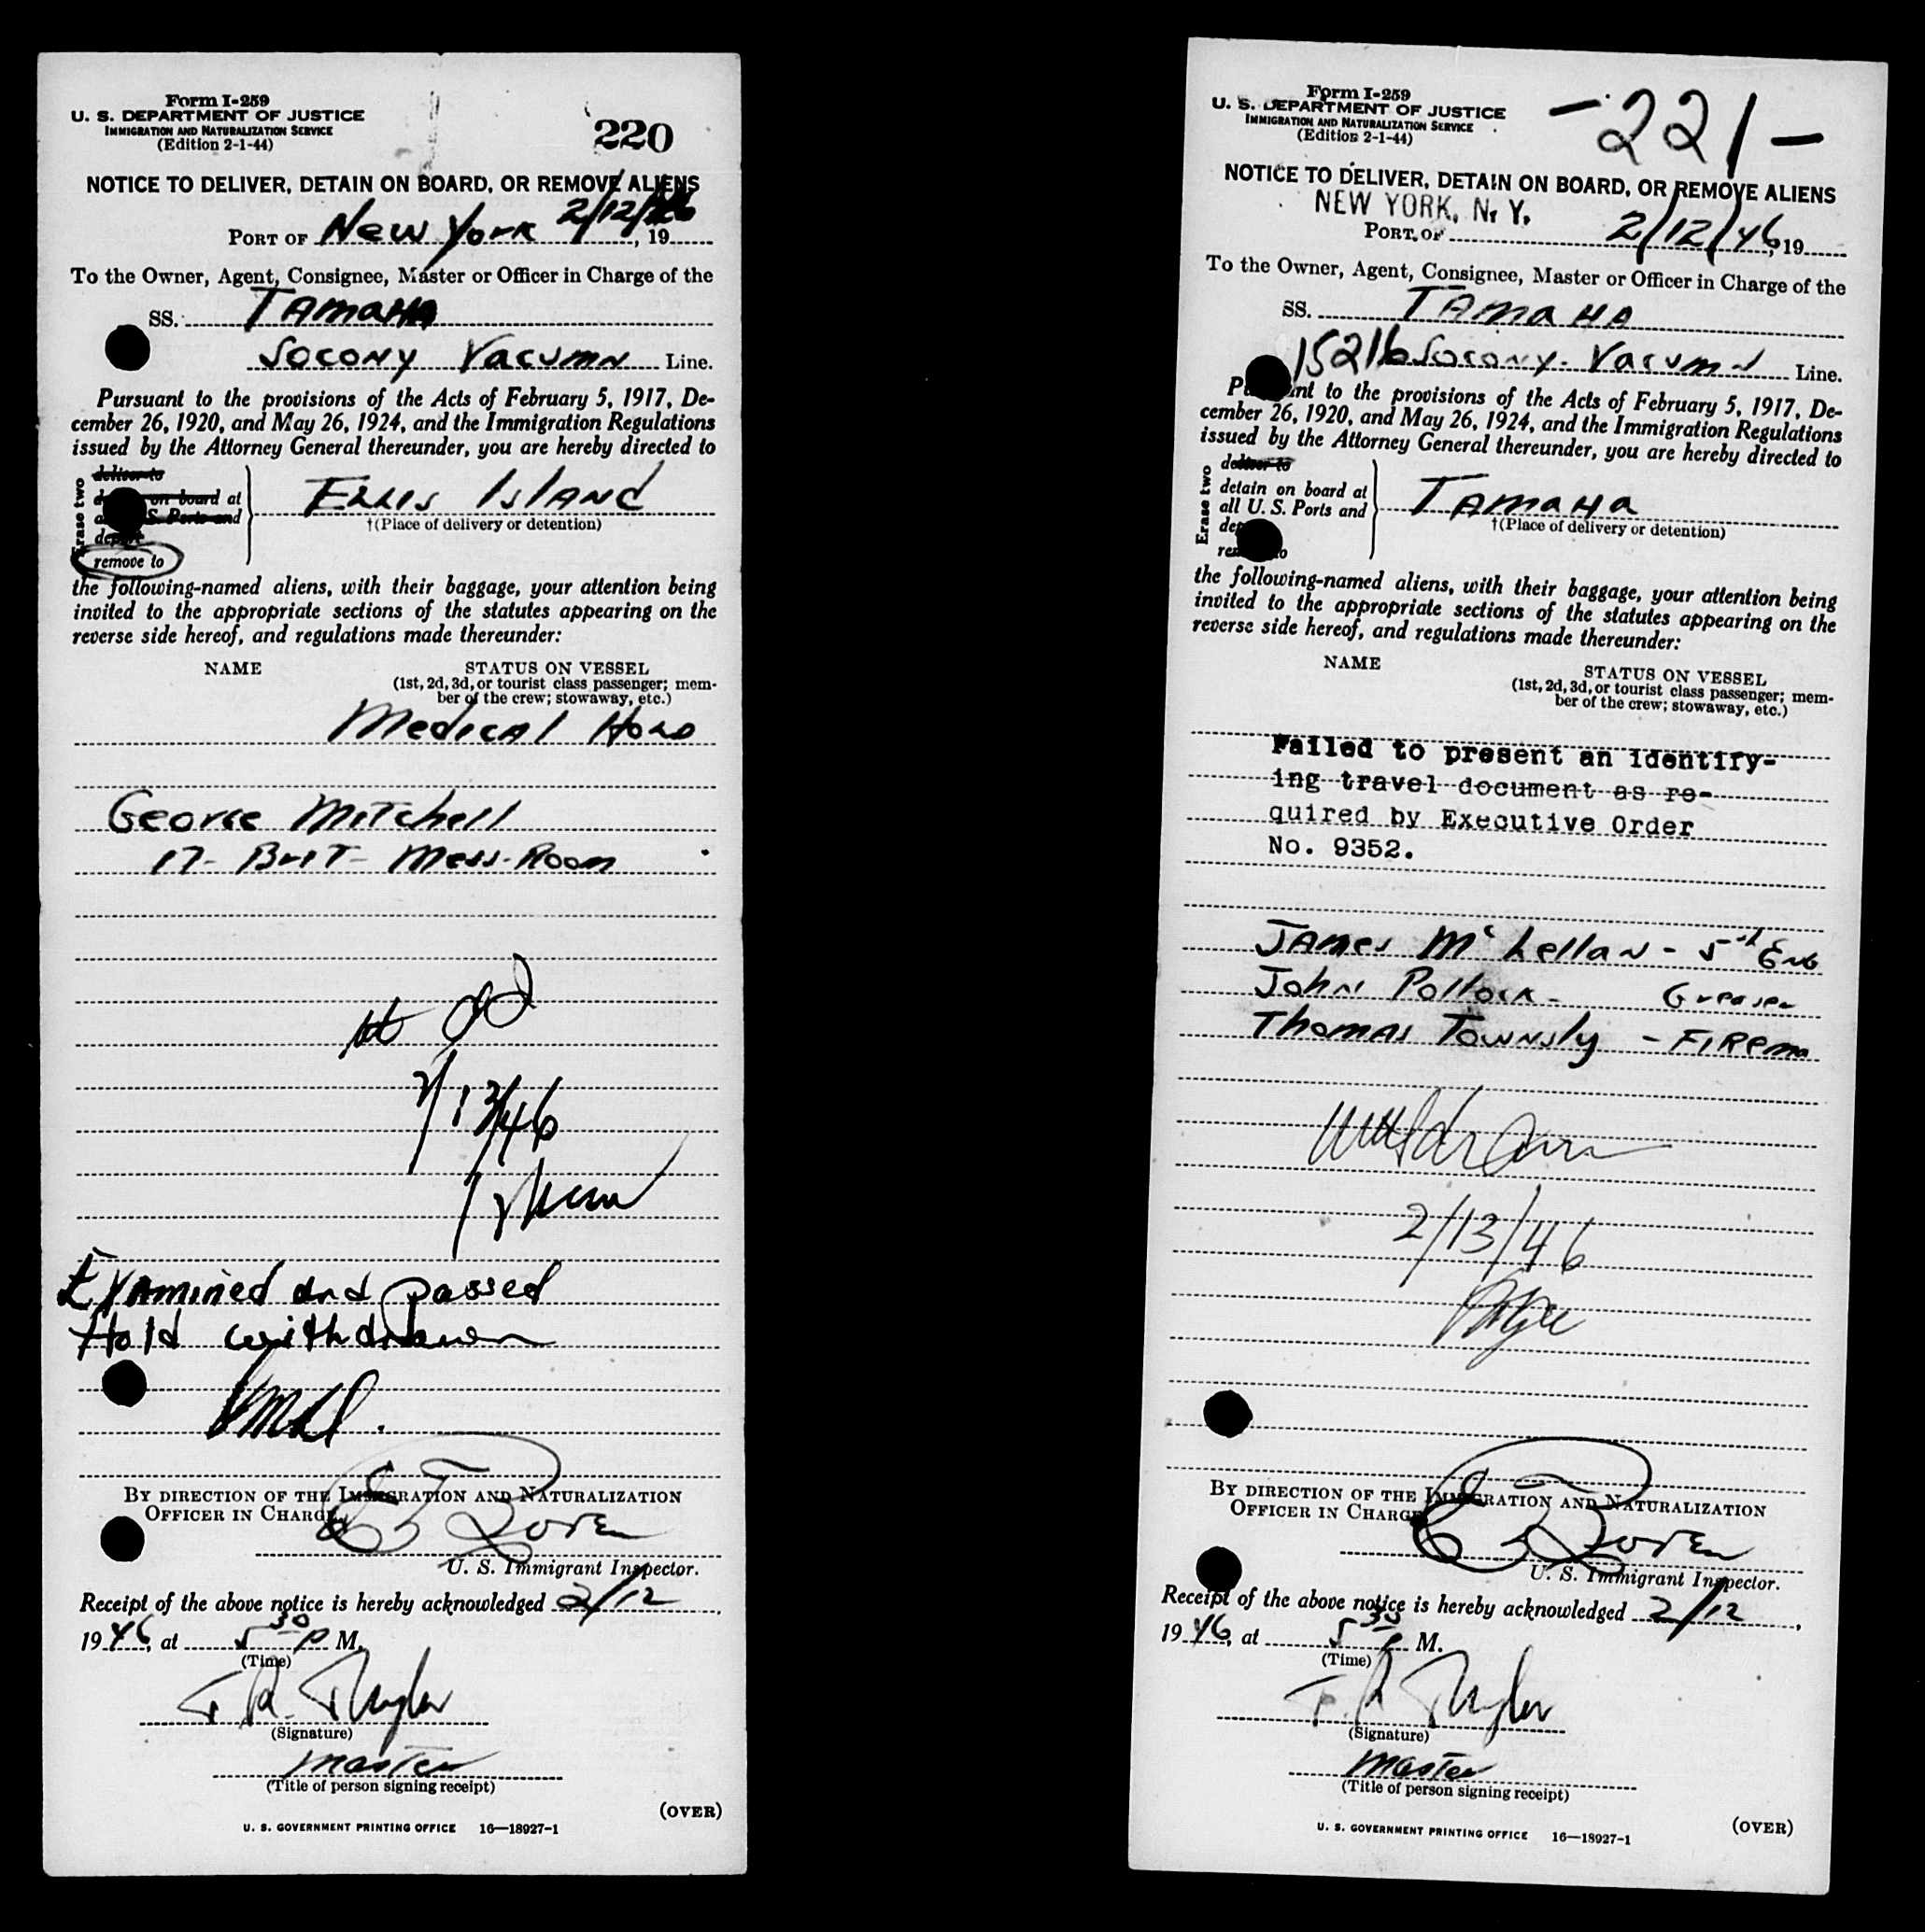 Form I-259
U. S. DEPARTMENT OF JUSTICE
IMMIGRATION AND NATURALIZATION SERVICE
(Edition 2-1-44)
220
NOTICE TO DELIVER, DETAIN ON BOARD, OR REMOVE ALIENS
PORT OF New York 2/12/46, 19
To the Owner, Agent, Consignee, Master or Officer in Charge of the
SS. TAMAHA
Socony Vacumn Line.
Pursuant to the provisions of the Acts of February 5, 1917, De-
cember 26, 1920, and May 26, 1924, and the Immigration Regulations
issued by the Attorney General thereunder, you are hereby directed to
Erase two
deliver to
on board at
S. Ports and
depart
remove to
Ellis Island
†(Place of delivery or detention)
the following-named aliens, with their baggage, your attention being
invited to the appropriate sections of the statutes appearing on the
reverse side hereof, and regulations made thereunder:
NAME
STATUS ON VESSEL
(1st, 2d, 3d, or tourist class passenger; mem-
ber of the crew; stowaway, etc.)
Medical Hold
George Mitchell
17- Brit- Mess-Room
2/13/46
Examined and passed
Hold withdrawn
BY DIRECTION OF THE IMMIGRATION AND NATURALIZATION
OFFICER IN CHARGE,
U. S. Immigrant Inspector.
Receipt of the above notice is hereby acknowledged 2/12,
1946, at 5 30 P M.
(Time)
(Signature)
master
(Title of person signing receipt)
(OVER)
U. S. GOVERNMENT PRINTING OFFICE 16—18927-1
Form I-259
U. S. DEPARTMENT OF JUSTICE
IMMIGRATION AND NATURALIZATION SERVICE
(Edition 2-1-44)
-221-
NOTICE TO DELIVER, DETAIN ON BOARD, OR REMOVE ALIENS
NEW YORK, N. Y.
PORT OF 2/12/46, 19
To the Owner, Agent, Consignee, Master or Officer in Charge of the
SS. TAMAHA
15216 Socony- Vacumn Line.
Pursuant to the provisions of the Acts of February 5, 1917, De-
cember 26, 1920, and May 26, 1924, and the Immigration Regulations
issued by the Attorney General thereunder, you are hereby directed to
Erase two
deliver to
detain on board at
all U. S. Ports and
Tamaha
†(Place of delivery or detention)
the following-named aliens, with their baggage, your attention being
invited to the appropriate sections of the statutes appearing on the
reverse side hereof, and regulations made thereunder:
NAME
STATUS ON VESSEL
(1st, 2d, 3d, or tourist class passenger; mem-
ber of the crew; stowaway, etc.)
Failed to present an identify-
ing travel document as re-
quired by Executive Order
No. 9352.
James McLellan - 5th Eng
John Pollock - Greaser
Thomas Townsly - Firema
2/13/46
BY DIRECTION OF THE IMMIGRATION AND NATURALIZATION
OFFICER IN CHARGE
U. S. Immigrant Inspector.
Receipt of the above notice is hereby acknowledged 2/12,
1946, at 5 30 P M.
(Time)
(Signature)
master
(Title of person signing receipt)
(OVER)
U. S. GOVERNMENT PRINTING OFFICE 16—18927-1